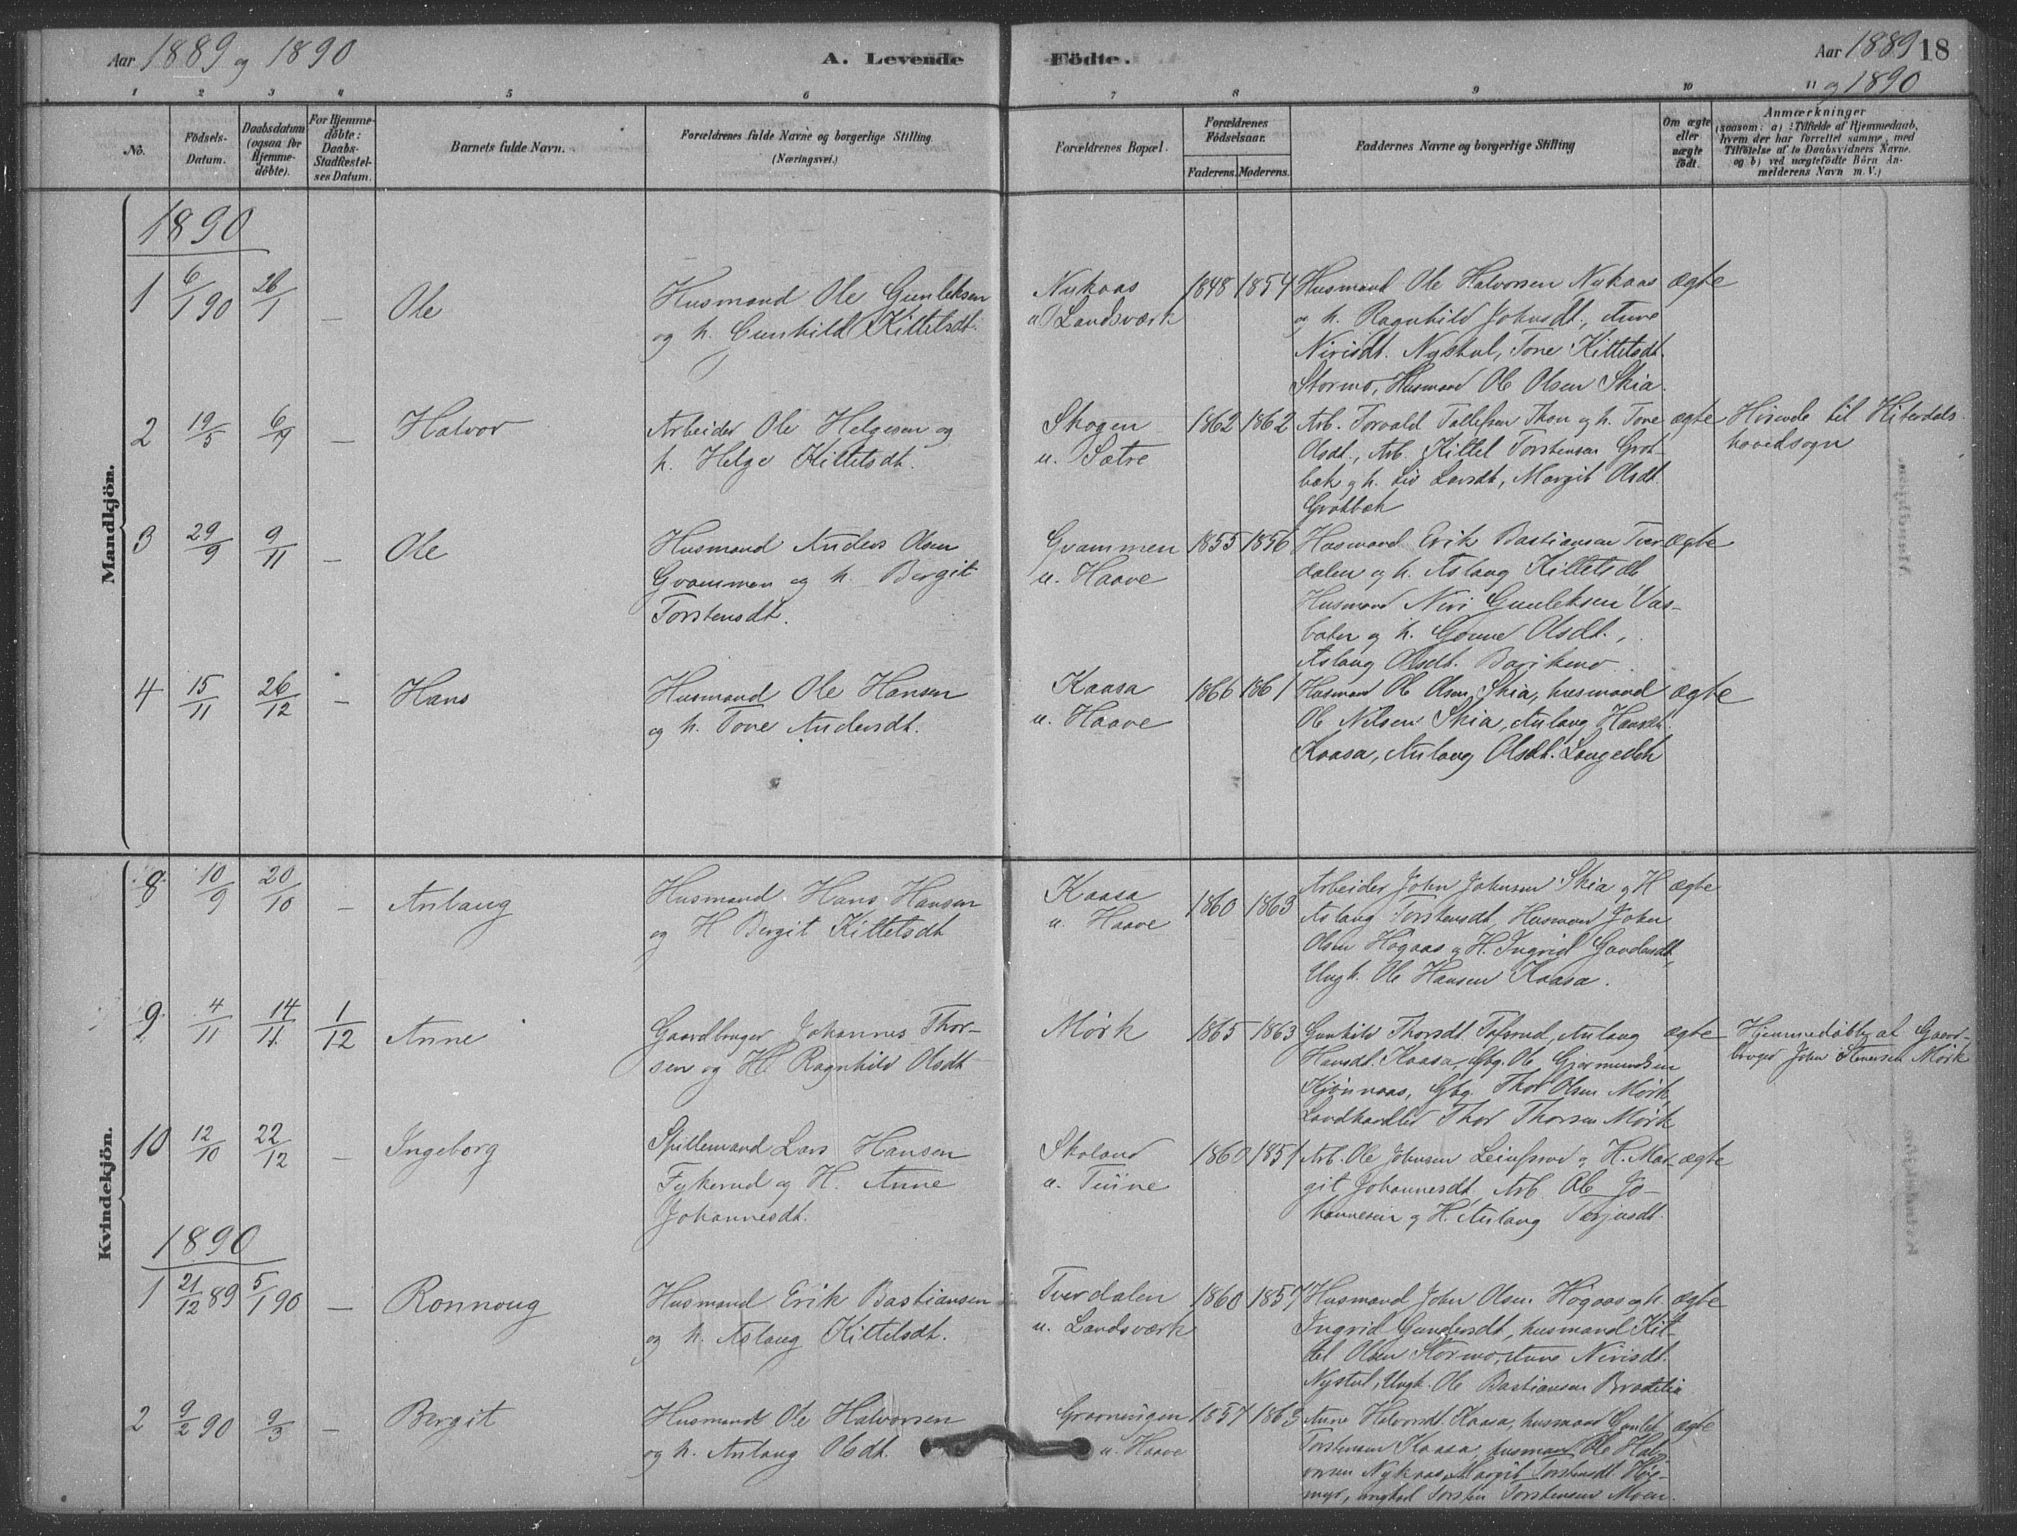 Aar 1889 og 1890
A. Levende Födte.
Aar 1889 18
og 1890
1 2 3 4 5 6 7 8 9 10 11
No.
Födsels-Datum.
Daabsdatum (ogsaa for Hjemmedöbte).
For Hjemmedöbte: Daabs-Stadfestelses Datum.
Barnets fulde Navn.
Forældrenes fulde Navne og borgerlige Stilling (Næringsvei.)
Forældrenes Bopæl.
Forældrenes Födselsaar.
Faderens. Moderens.
Faddernes Navne og borgerlige Stilling
Om ægte eller uægte födt.
Anmærkninger
(saasom: a) Tilfælde af Hjemmedaab,
hvem der har forrettet samme, med
Tilföielse af to Daabsvidners Navne.
og b) ved uægtefödte Börn An-
melderens Navn m. V.)
Mandkjön.
1890
1 6/1 90 26/1 — Ole
Husmand Ole Gunleksen
og h. Gunhild Kittelsdt.
Nykaas
u. Landsværk
1848 1854
Husmand Ole Halvorsen Nykaas
og h. Ragnhild Johnsdt., Anne
Nirisdt. Nystul, Tone Kittelsdt.
Stormo, Husmand Ole Olsen Skia.
ægte
2 19/5 6/7 — Halvor
Arbeider Ole Helgesen og
h. Helge Kittelsdt.
Skogen
u. Sætre
1862 1862
Arb. Torvald Tollefsen Thon og h. Tone
Olsdt., Arb. Kittel Torstensen Grot-
bæk og h. Liv Larsdt, Margit Olsdt.
Grotbæk
ægte
Hörende til Hiterdals
hovedsogn
3 29/9 9/11 — Ole
Husmand Anders Olsen
Grammen og h. Bergit
Torstensdt.
Grammen
u. Haave
1855 1856
Husmand Erik Bastiansen Tver-
dalen og h. Aslaug Kittelsdt.
Husmand Niri Gunleksen Vas-
boten og h. Gonne Olsdt.,
Aslaug Olsdt.
ægte
4 15/11 26/12 — Hans
Husmand Ole Hansen
og h. Tone Andersdt.
Kaasa
u. Haave
1866 1861
Husmand Ole Olsen Skia, husmand
Ole Nilsen Skia, Aslaug Hansdt.
Kaasa, Aslaug Olsdt.
ægte
Kvindekjön.
8 10/9 20/10 — Aslaug
Husmand Hans Hansen
og H Bergit Kittelsdt
Kaasa
u. Haave
1860 1863
Arbeider John Johnsen Skia og H
Aslaug Torstensdt, Husmand John
Olsen Högaas og H. Ingrid Gundersdt,
Ungk. Ole Hansen Kaasa.
ægte
9 4/11 14/11 1/12 Anne
Gaardbruger Johannes Thor-
sen og H. Ragnhild Olsdt
Mørk
1865 1863
Gunhild Thorsdt. Aslaug
Hansdt. Kaasa, Gbg. Ole Gjermundsen
Kjønnaas, Gbg. Thor Olsen Mørk,
Landhandler Thor Thorsen Mørk
ægte
Hjemmedøbt af Gaard-
bruger John Mørk
10 12/10 22/12 — Ingeborg
Spillemand Lars Hansen
Fykerud og H. Anne
Johannesdt.
Skoland
u. Tinne
1860 1851
Arb. Ole Johnsen og H. Mar-
git Johannesdt, Arb. Ole Jo-
hannesen og H. Aslaug Terjusdt.
ægte
1890
1 21/12 89 5/1 90 — Ronnoug
Husmand Erik Bastiansen
og h. Aslaug Kittelsdt.
Tverdalen
u. Landsværk
1860 1857
Husmand John Olsen Högaas og h.
Ingrid Gundersdt, husmand Kit-
tel Olsen Stormo, Anne Nirisdt.
Nystul, Ungk. Ole Bastiansen Bradelia
ægte
2 9/2 90 9/3 — Bergit
Husmand Ole Halvorsen
og h. Aslaug Olsdt.
Grønningen
u. Haave
1857 1863
Anne Halvorsdt. Kaasa, husmand Gunlek
Torstensen Kaasa, husmand Ole Hal-
vorsen Nykaas, Margit Torstensdt. Høg-
myr, ungkarl Torsten Torstensen Moen.
ægte